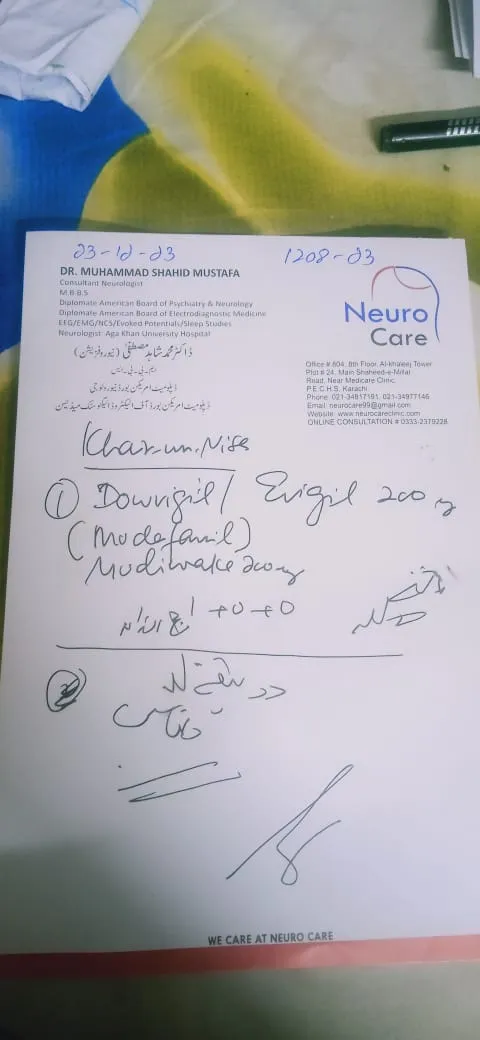 23-12-23 1208-23
DR. MUHAMMAD SHAHID MUSTAFA
Consultant Neurologist
M.B.B.S
Diplomate American Board of Psychiatry & Neurology
Diplomate American Board of Electrodiagnostic Medicine
EEG/EMG/NCS/Evoked Potentials/Sleep Studies
Neurologist: Aga Khan University Hospital
ڈاکٹر محمد شاہد مصطفیٰ (نیوروفزیشن)
ایم۔بی۔بی۔ایس
ڈپلومیٹ امریکن بورڈ نیورولوجی
ڈپلومیٹ امریکن بورڈ آف الیکٹروڈائیگنوسٹک میڈیسن
Neuro
Care
Office # 804, 8th Floor, Al-khaleej Tower
Plot # 24, Main Shaheed-e-Millat
Road, Near Medicare Clinic,
P.E.C.H.S, Karachi
Phone: 021-34817191, 021-34977146
Email: neurocare99@gmail.com
Website: www.neurocareclinic.com
ONLINE CONSULTATION # 0333-2379228
Khar-un-Niss
① Dowrigil / Evigil 200 mg
(Modafanil)
Modiwake 200 mg
1 +0 +0
دو ہفتے
WE CARE AT NEURO CARE